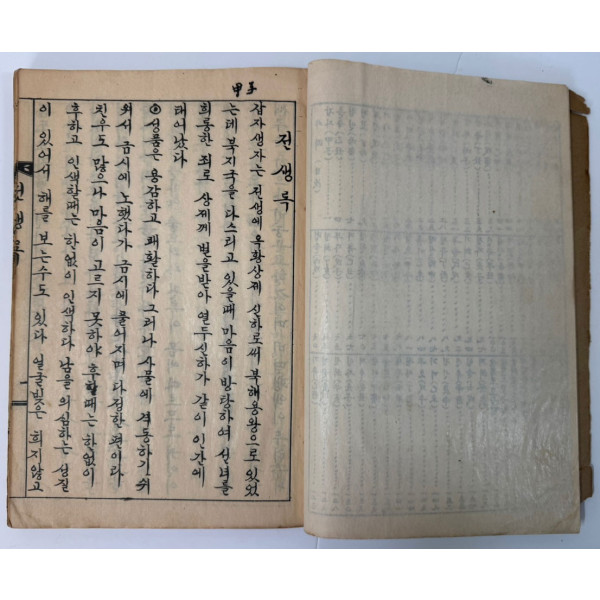 甲子
전생록
갑자생자는 전생에 옥황상제 신하로써 북해용왕으로 있었
는데 북지국을 다스리고 있을때 마음이 방탕하여 선녀를
희롱한 죄로 상제께 벌을받아 열두신하가 같이 인간에
태여났다
◎성품은 용감하고 쾌활하다 그러나 사물에 격동하기쉬
워서 금시에 노했다가 금시에 풀어지며 다정한 편이라
친우도 많으나 마음이 고르지 못하야 후할때는 한없이
후하고 인색할때는 한없이 인색하다 남을 의심하는 성질
이 있어서 해를 보는수도 있다 얼굴빛은 희지않고
전생록